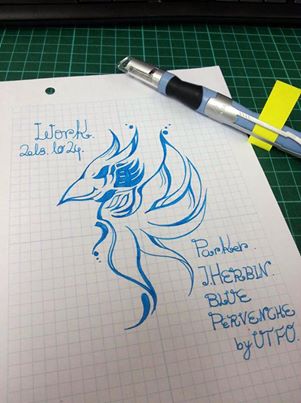 Work.
2010.10.24.
Parker.
J.HERBIN.
BLUE
PERVENCHE
by UTFO.